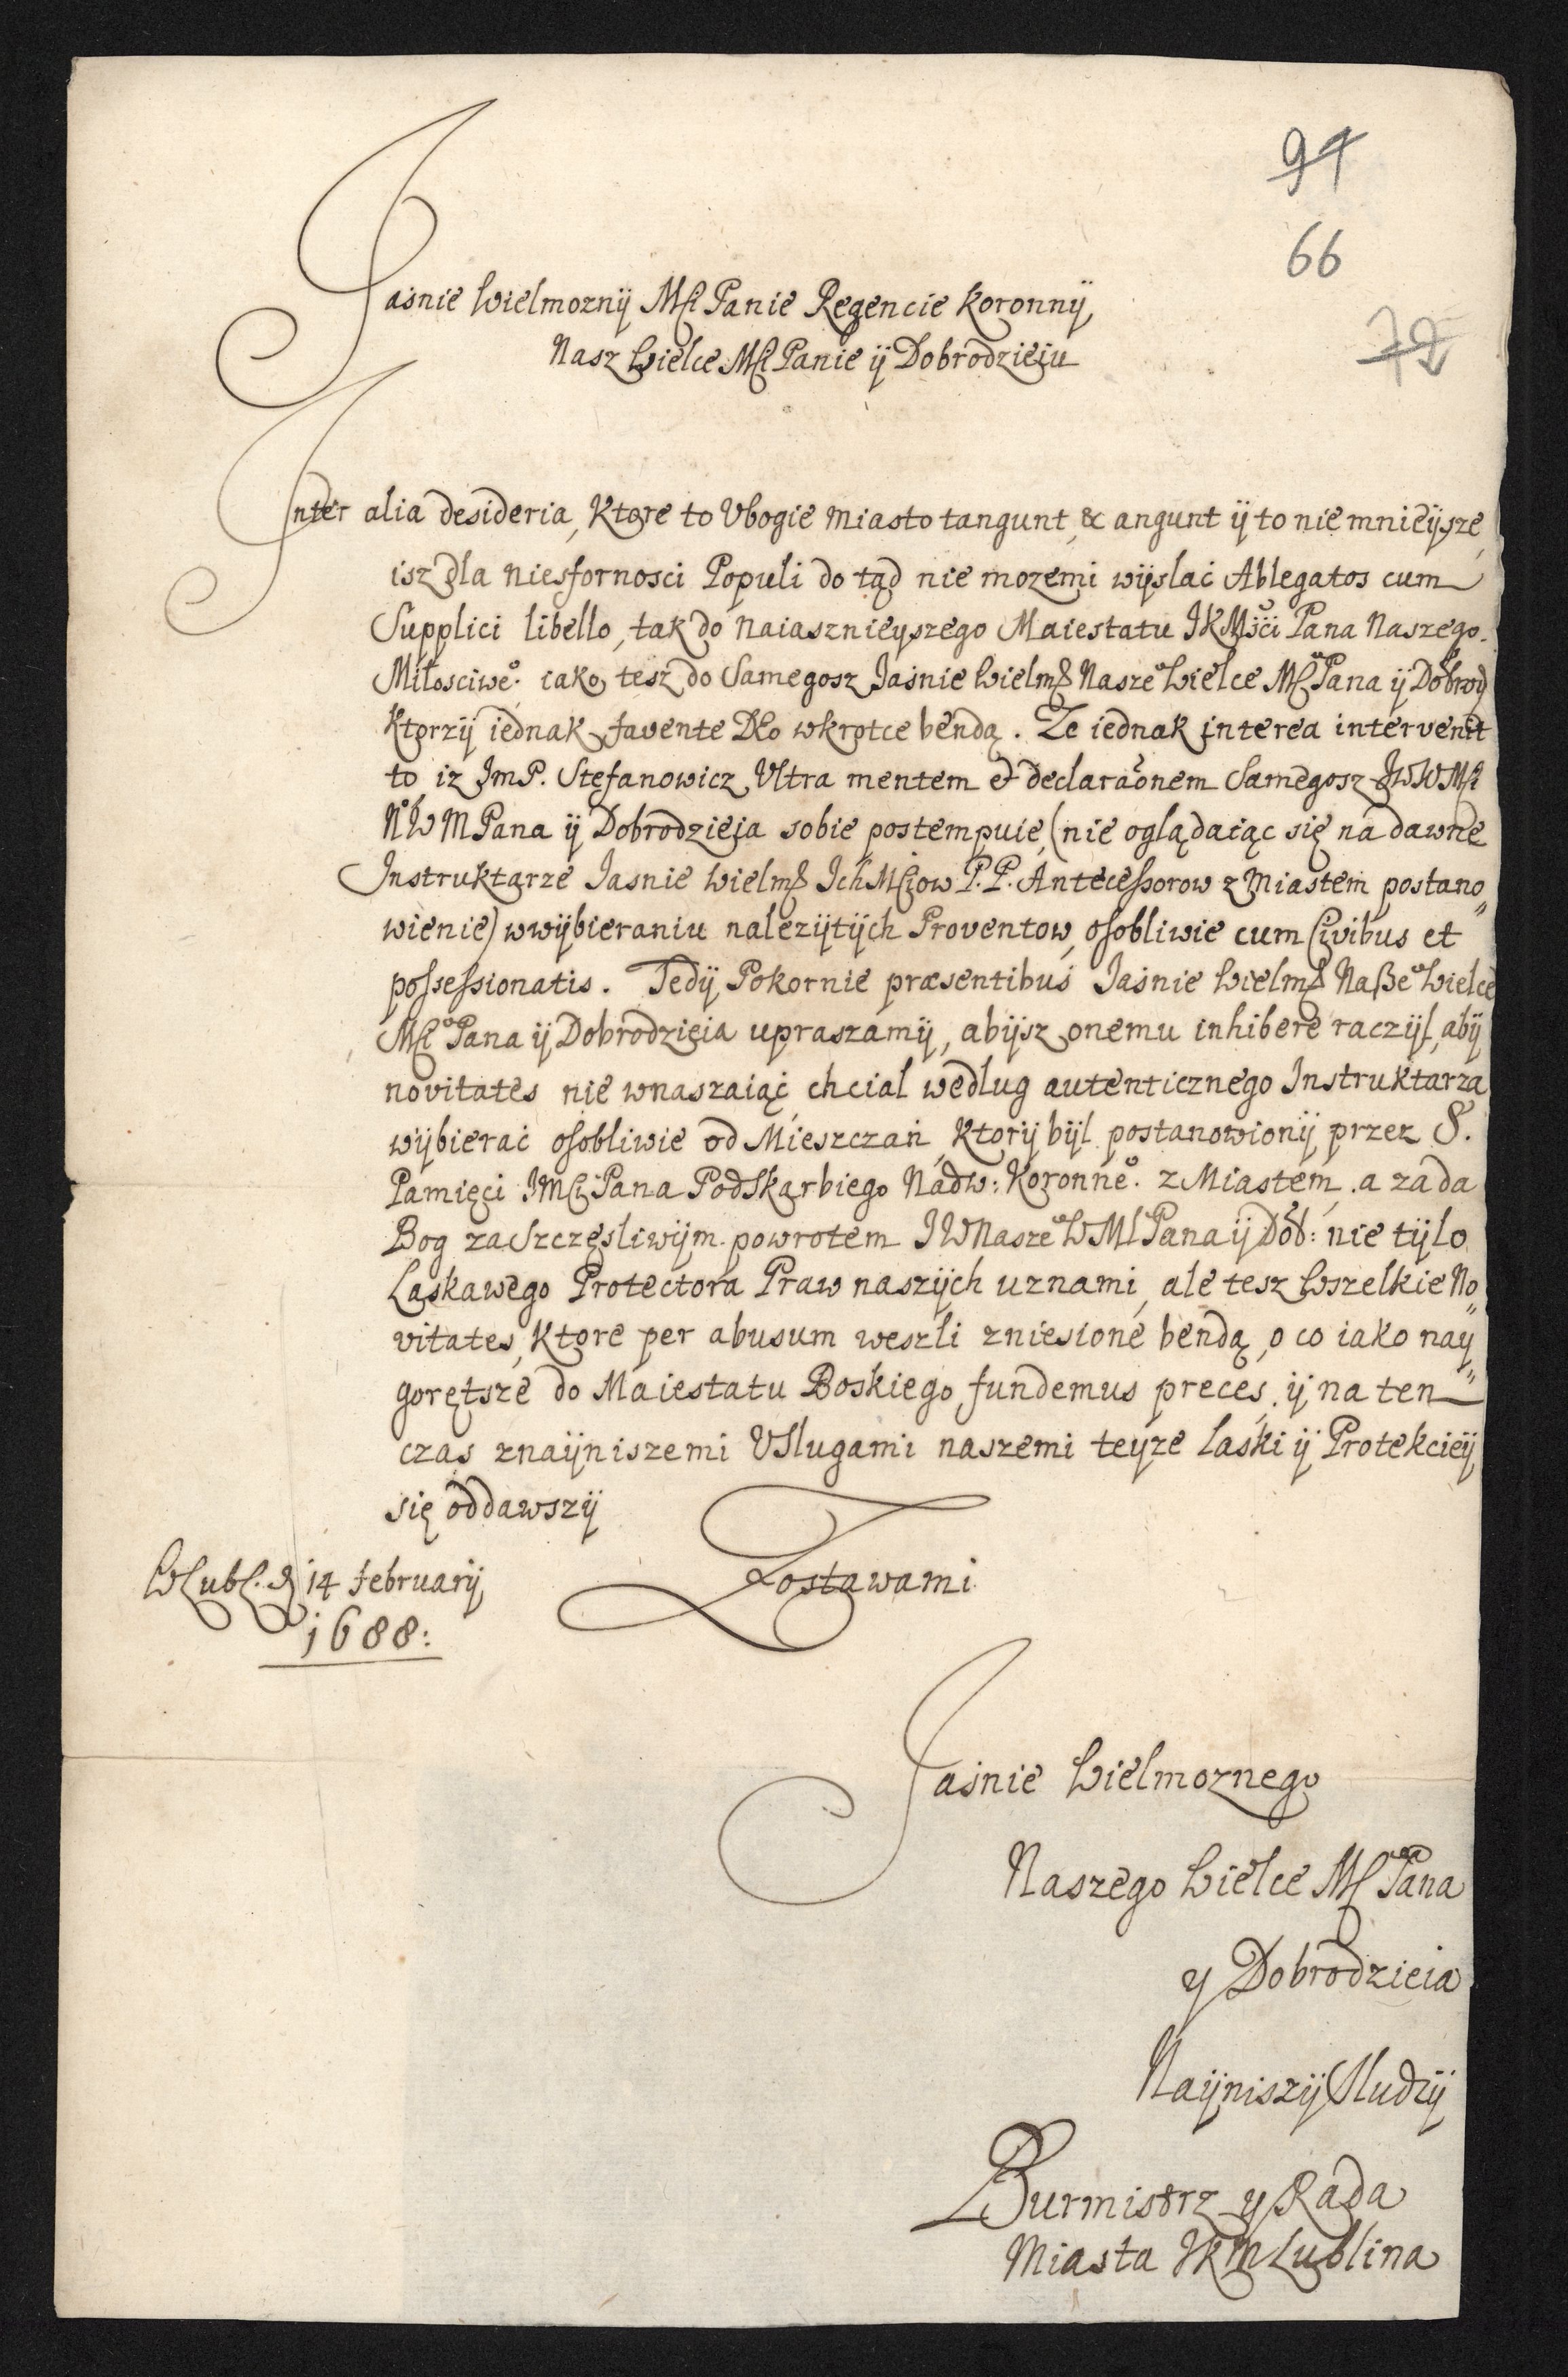 94
66
72
Jasnie Wielmoznÿ Mśći Panie Regencie Koronnÿ
Nasz Wielce Mśći Panie ÿ Dobrodzieiu
Inter alia desideria, Ktore to Vbogie Miasto tangunt, & angunt ÿ to nie mnieÿsze,
isz dla niesfornosci Populi do tąd nie mozemi wÿslać Ablegatos cum
Supplici libello, tak do Naiasznieyszego Maiestatu JKMśći Pana Naszego
Miłosciweº. iako tesz do Samegosz Jaśnie Wielmº Naszeº Wielce Mº Pana ÿ Dobrod
Ktorzÿ iednak favente Deo wkrotce bendą. Ze iednak interea intervenit
to iz JmP. Stefanowicz Vltra mentem & declaraõnem Samegosz JWWMśći
NºWMPana ÿ Dobrodzieia sobie postempuie, (nie oglądaiąc się na dawne
Instruktarze Jasnie Wielmº IchMśćiow P.P. Antecessorow z Miastem postano„
wienie) wwÿbieraniu nalezÿtÿch Proventow, osobliwie cum Civibus et
possessionatis. Tedÿ Pokornie præsentibus Jaśnie Wielmº Naßeº Wielce
Mśći Pana ÿ Dobrodzieia upraszamÿ, abÿsz onemu inhibere raczÿł, abÿ
novitates nie wnaszaiąć, chcial według autenticznego Instruktarza
wÿbierać osobliwie od Mieszczań, Ktorÿ bÿl postanowionÿ przez S.
Pamięci JMśći Pana Podskarbiego Nadw: Koronneº. z Miastem, a za da
Bog za Szczęsliwÿm powrotem JWNaszeº WMśPana ÿ Dob: nie tÿlo
Laskawego Protectora Praw naszÿch uznami, ale tesz Wszelkie No„
vitates, Ktore per abusum weszli zniesione bendą, o co iako nay„
goretsze do Maiestatu Boskiego fundemus preces, ÿ na ten
czas znaÿniszemi Vslugami naszemi teyze Laski ÿ Protekcieÿ
się oddawszÿ
Zostawami
WLubl. d 14 februarÿ
1688:
Jaśnie Wielmoznego
Naszego Wielce Mº Pana
y Dobrodzieia
Naÿniszÿ Sludzÿ
Burmistrz y Rada
Miasta JKM Lublina